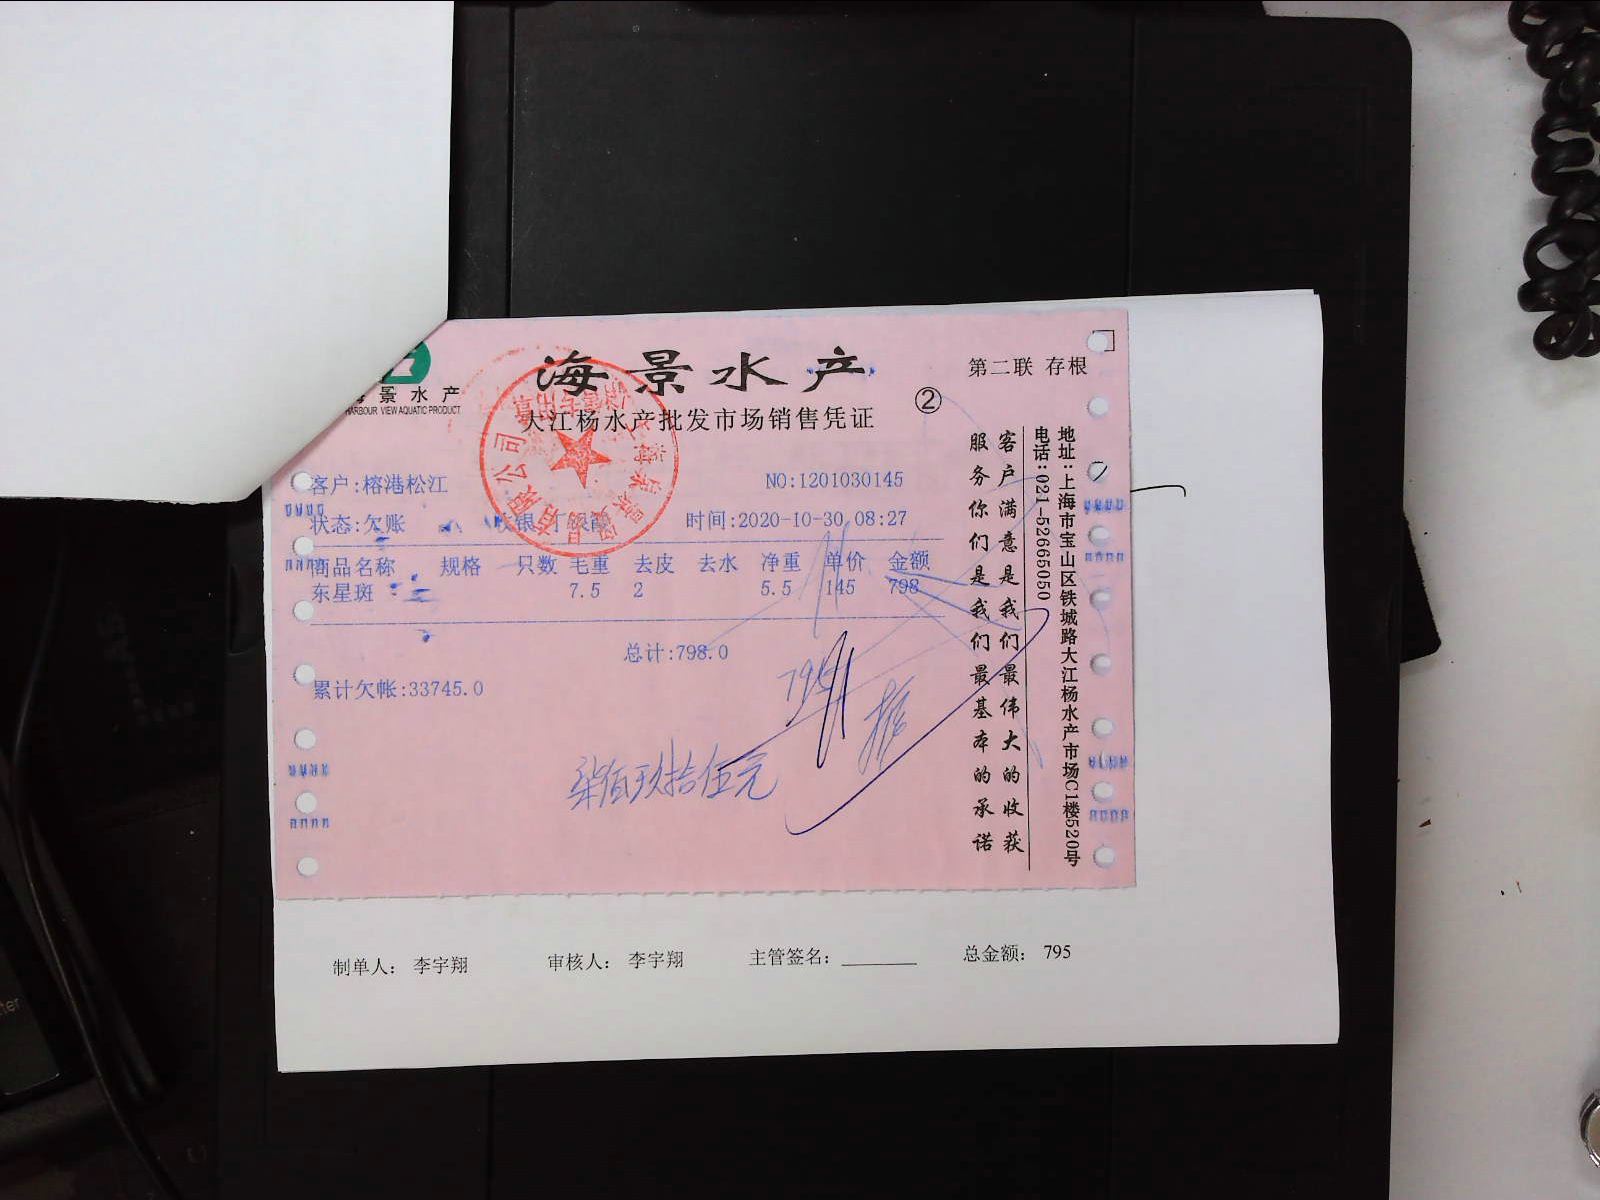 海景水产
第二联 存根
景水产
HARBOUR VIEW AQUATIC PRODUCT
大江杨水产批发市场销售凭证
②
客户:榕港松江
NO:1201030145
状态:欠账
收银
时间:2020-10-30 08:27
商品名称 规格 只数 毛重 去皮 去水 净重 单价 金额
东星斑 7.5 2 5.5 145 798
总计:798.0
累计欠帐:33745.0
795
柒佰玖拾伍元
客户满意是我们最伟大的收获
服务你们是我们最基本的承诺
地址:上海市宝山区铁城路大江杨水产市场C1楼520号
电话:021-52665050
制单人: 李宇翔 审核人: 李宇翔 主管签名: 总金额: 795